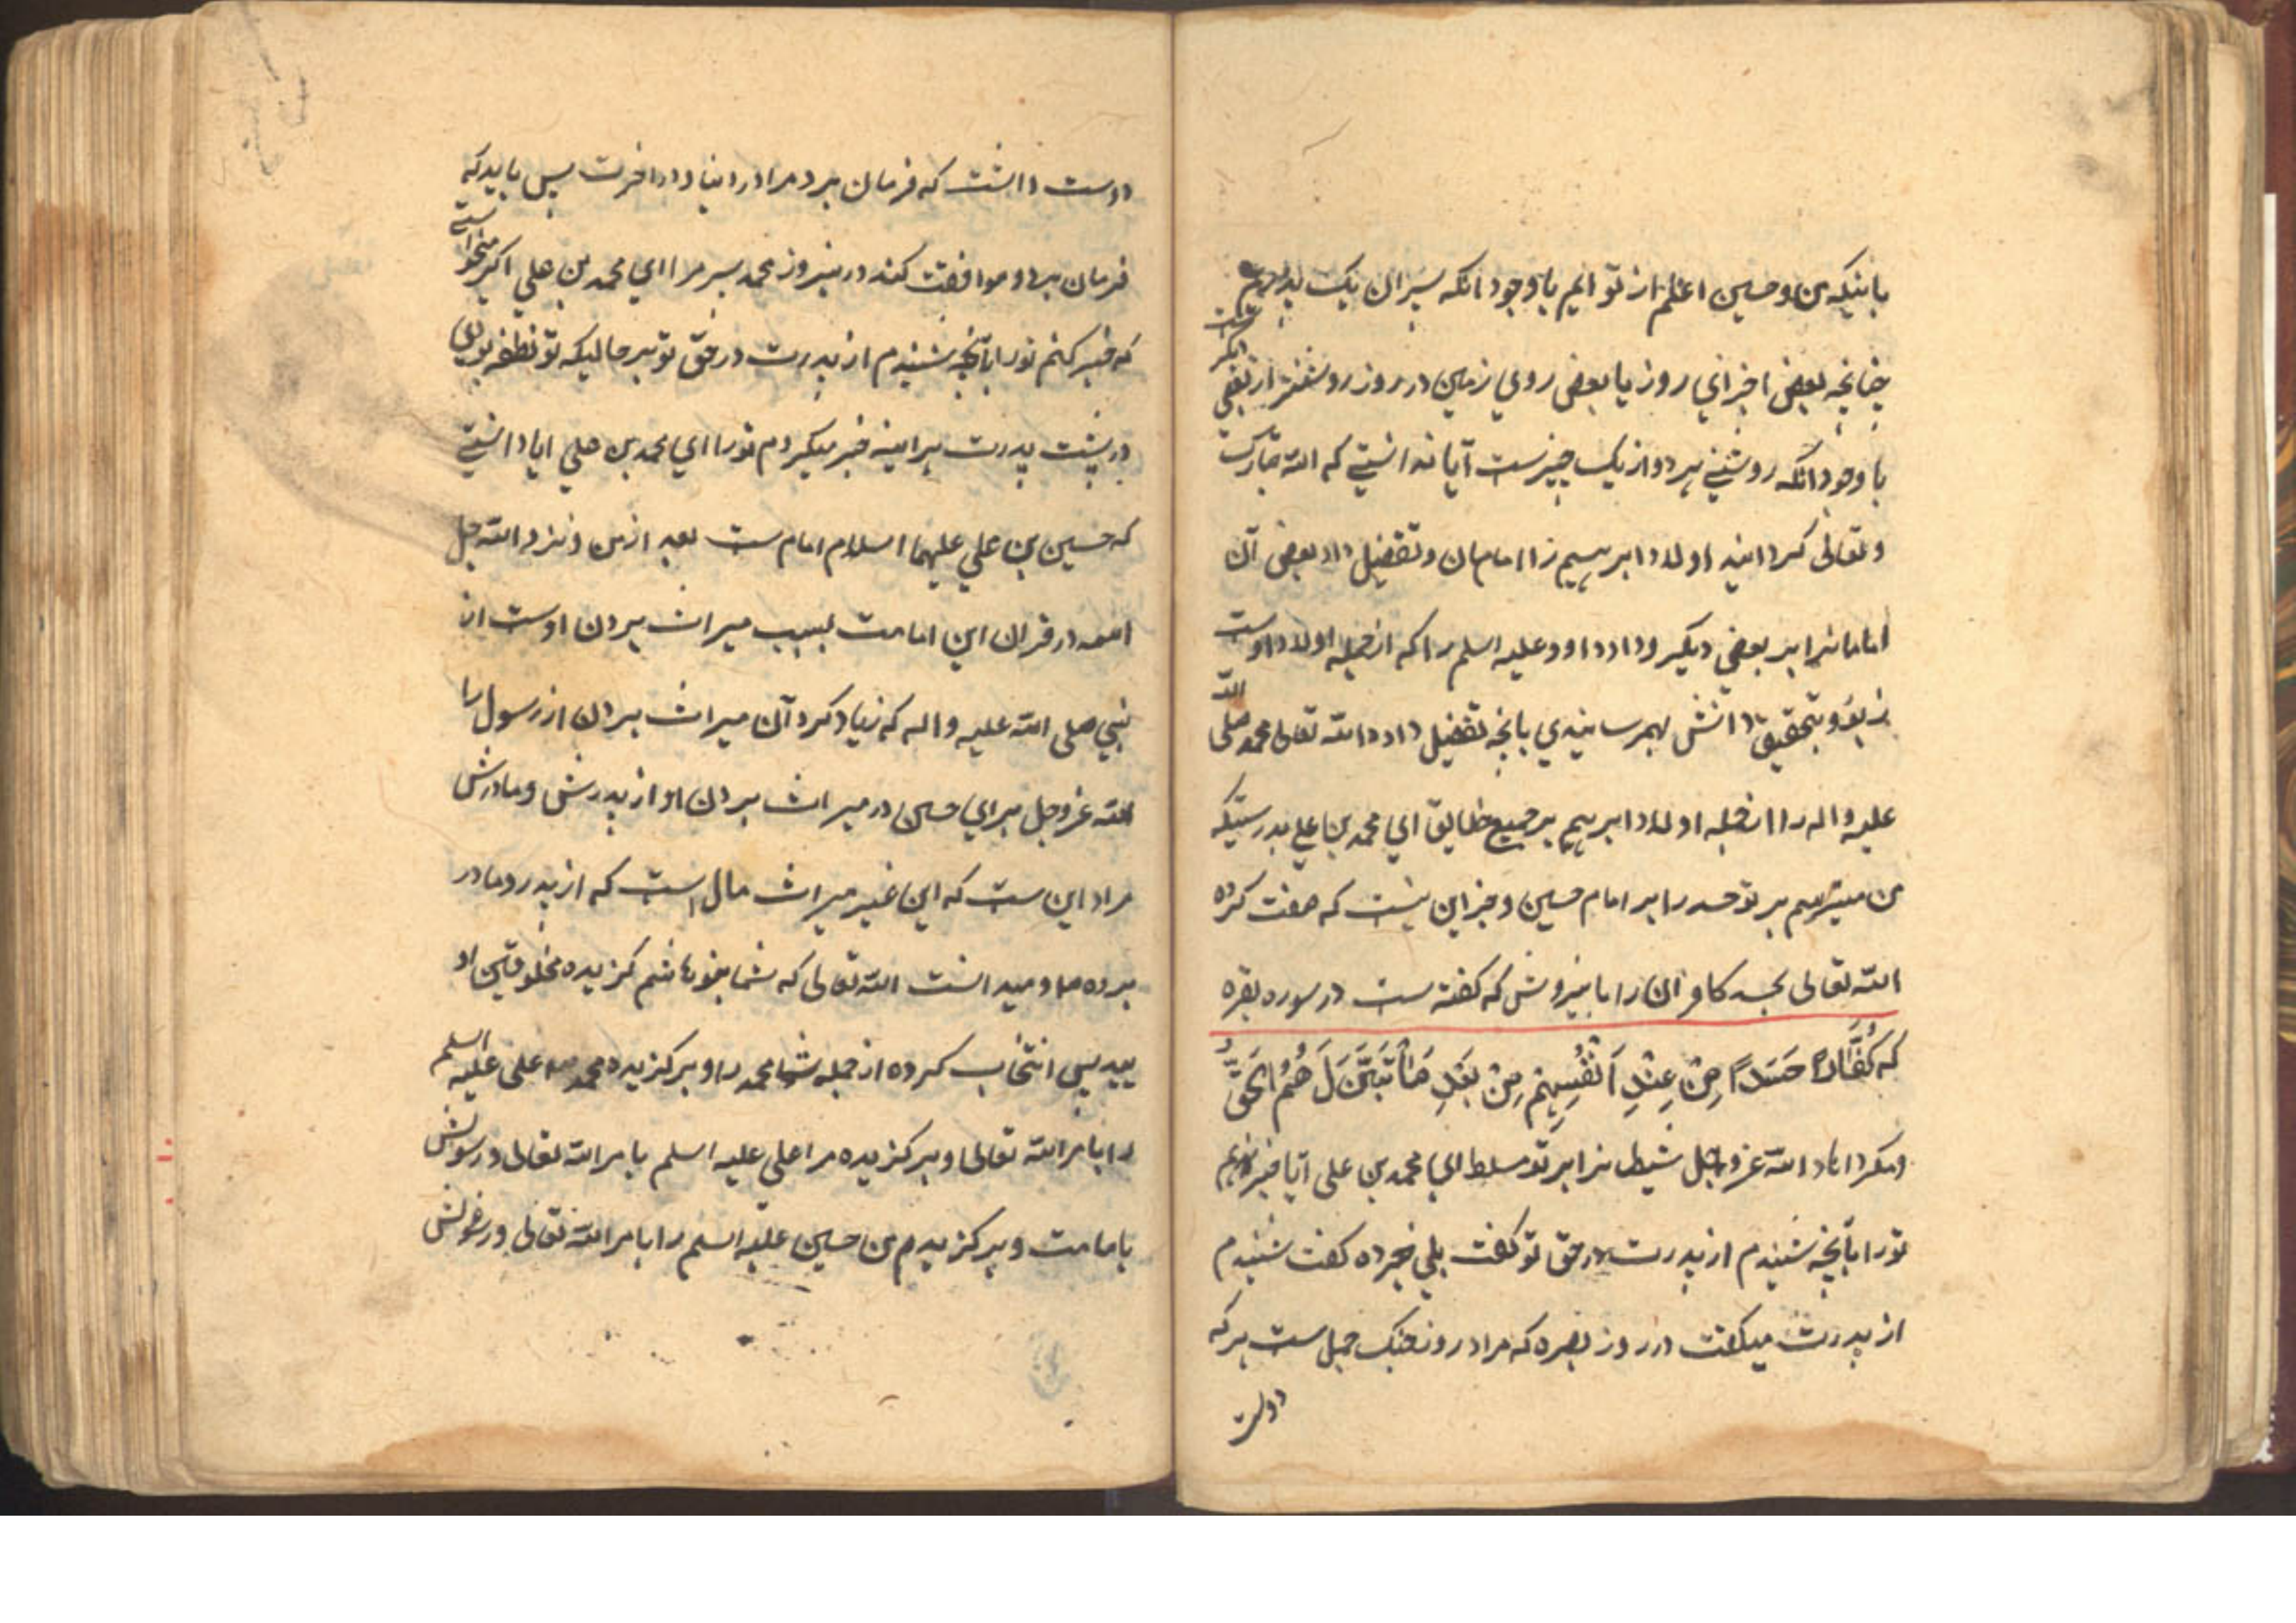 باینکه من و حسین اعلم از تو ایم با وجود انکه پسران یک پدریم
چنانچه بعضی اجزای روز یا بعضی روی زمین در روز روشنتر از بعضی دیگر ست
با وجود انکه روشنی هر دو از یک چیزست آیا ندانستی که الله تبارک
و تعالی کردانید اولاد ابرهیم را امامان و تفضیل داد بعضی آن
امامانرا بر بعضی دیگر و داد داود علیه اسلم را که از جمله اولاد اوست
زبور و بتحقیق دانش بهمرسانیدی بانچه تفضیل داد الله تعالی محمد صلی الله
علیه واله را از جمله اولاد ابرهیم بر جمیع خلایق ای محمد بن علی بدرستیکه
من میترسم بر تو حسد را بر امام حسین و جز این نیست که صفت کرده
الله تعالی بحسد کافران را باینروش که کفته ست در سوره بقره
که کُفَّارًا حَسَدًا مِنْ عِنْدِ اَنْفُسِهِمْ مِنْ بَعْدِ مَا تَبَيَّنَ لَهُمُ الحَقُّ
ومکرداناد الله عز وجل شیطانرا بر تو مسلط ای محمد بن علی آیا خبر ندهم
تو را بآنچه شنیدم از پدرت در حق تو کفت بلی خبر ده کفت شنیدم
از پدرت میکفت در روز بصره که مراد روز جنک جمل ست هر که
دوست
دوست داشت که فرمان برد مرا در دنیا و در اخرت پس باید که
فرمان برد و موافقت کند در ینروز محمد پسر مرا ای محمد بن علی اکر میخواستی
که خبر کنم تو را بآنچه شنیدم از پدرت در حق تو بر حالیکه تو نطفه بودی
در پشت پدرت هراینه خبر میکردم تو را ای محمد بن علی ایا دانستی
که حسین بن علی علیهما اسلام امام ست بعد از من و نزد الله جل
اسمه در قران این امامت بسبب میراث بردن اوست از
نبی صلی الله علیه واله که زیاد کرد آن میراث بردن از رسول را
الله عز وجل برای حسین در میراث بردن او از پدرش و مادرش
مراد این ست که این غیر میراث مال است که از پدر و مادر
برده و میدانست الله تعالی که شما بنوهاشم کزیده مخلوقین او
یید پس انتخاب کرده از جمله شما محمد را و برکزیده محمد علی علیه اسلم
را بامر الله تعالی و برکزیده مرا علی علیه اسلم بامر الله تعالی و رسولش
بامامت و برکزیدم من حسین علیه اسلم را بامر الله تعالی و رسولش